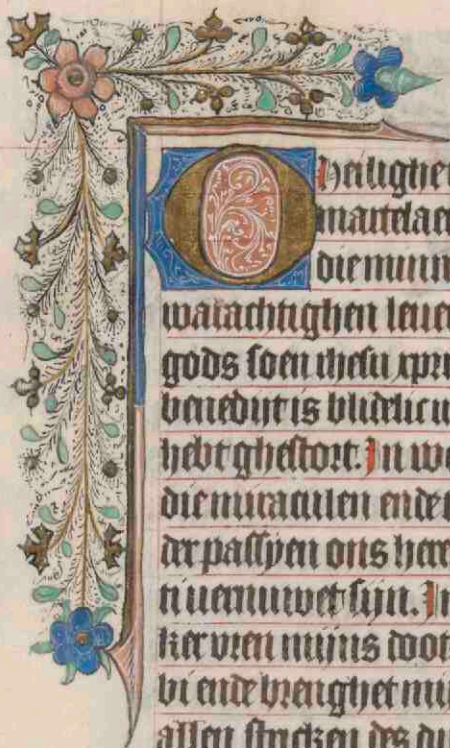 O heilighe
martelae
die minn
warachtighen leue
gods soen ihesu xpri
benedijt is blidelic u
hebt ghestort. In w
die miraculen ende
der passyen ons here
ti uernuwet sijn. In
ker vren mijns doot
bi ende brenghet mi
allen stricken des du